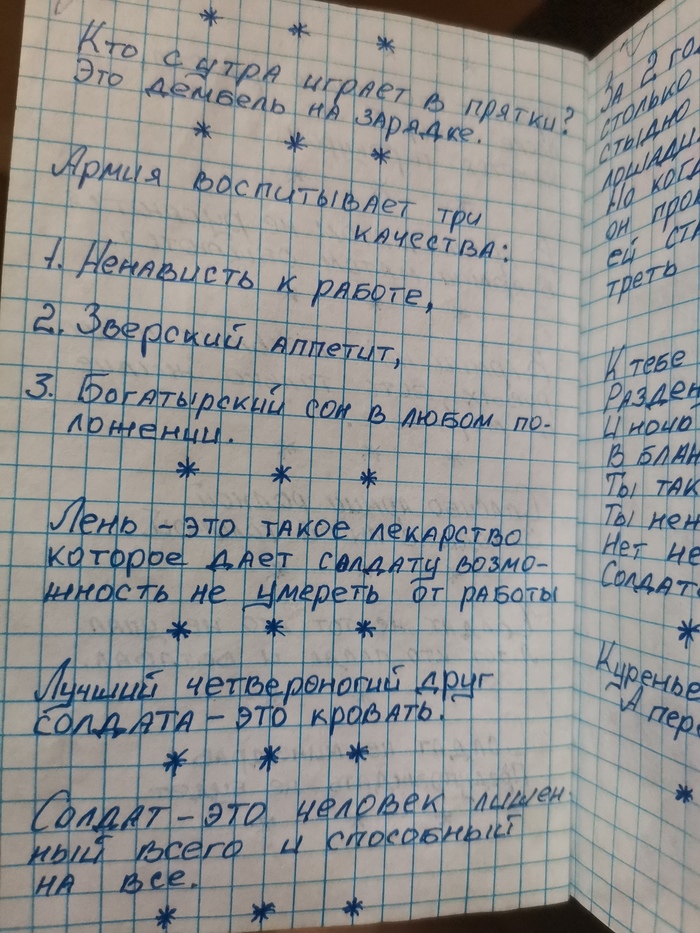 * * *
Кто с утра играет в прятки?
Это дембель на зарядке.
* * *
Армия воспитывает три
качества:
1. Ненависть к работе,
2. Зверский аппетит,
3. Богатырский сон в любом по-
ложении.
* * *
Лень - это такое лекарство
которое дает солдату возмо-
жность не умереть от работы
* * *
Лучший четвероногий друг
солдата - это кровать.
* * *
Солдат - это человек лишен
ный всего и способный
на все.
* * *
За 2 год
столько
стыдно
лошади.
Но когд
он про
ей ста
треть
К тебе
Разден
И ночь
В блан
Ты так
Ты нен
Нет не
Солдат
*
Куренье
А пер
*